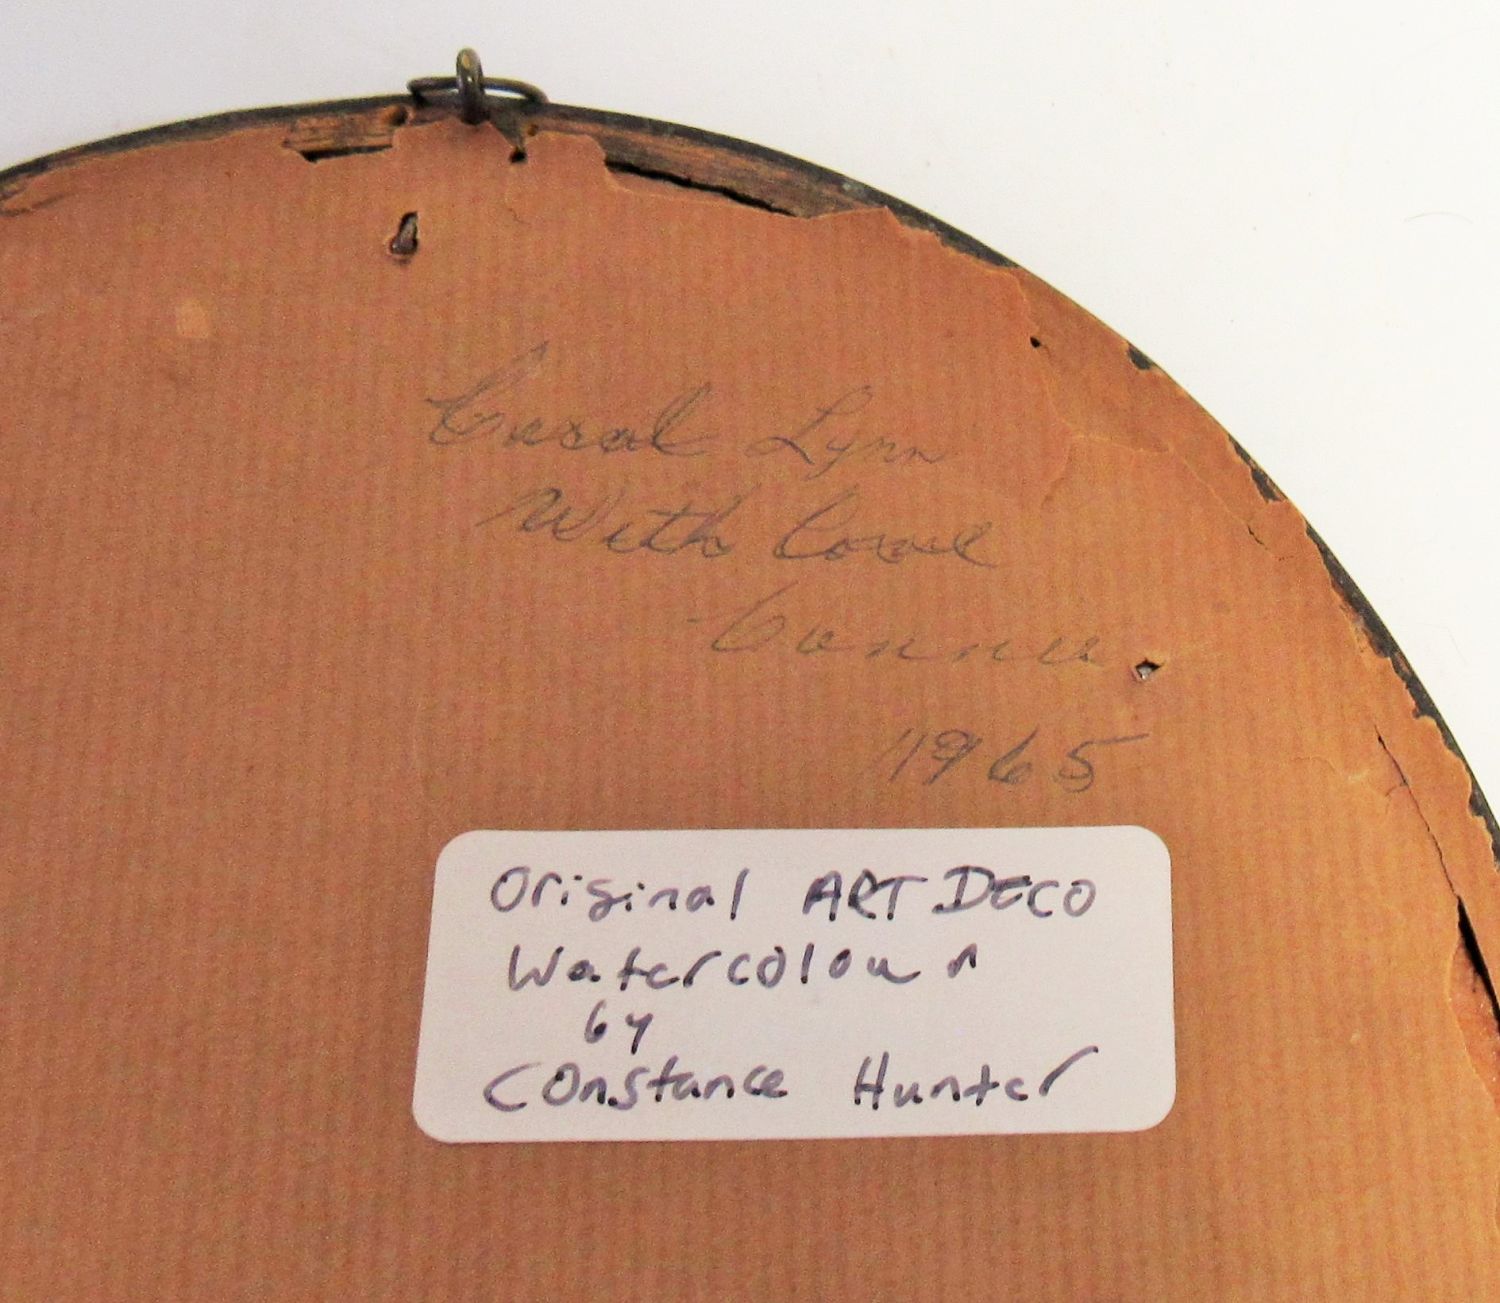 Carol Lynn
With Love
Connie
1965
Original ART DECO
Watercolour
by
Constance Hunter